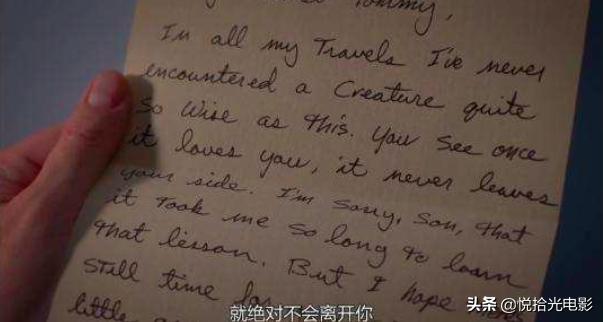 Tommy,
In all my Travels I've never
encountered a Creature quite
So Wise as this. You See once
it loves you, it never leaves
your side. I'm Sorry, Son, that
it Took me So long To learn
That lesson. But I hope
Still time for
little
就绝对不会离开你
头条 @悦拾光电影